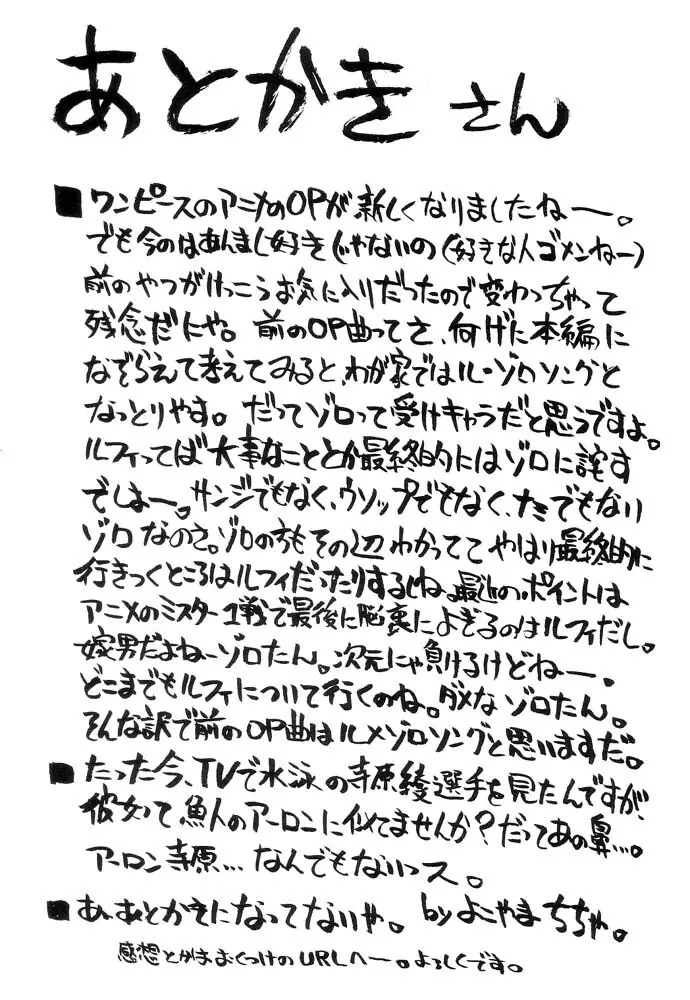 あとかきさん
■ワンピースのアニメのOPが新しくなりましたねー。
でも今のはあんまし好きじゃないの(好きな人ゴメンねー)
前のやつがけっこうお気に入りだったので変わっちゃって
残念だにゃ。前のOP曲ってさ、何げに本編に
なぞらえて考えてみると、わが家ではル・ゾロソングと
なっとりやす。だってゾロって受けキャラだと思うですよ。
ルフィってば大事なこととか最終的にはゾロに託す
でしょー。サンジでもなく、ウソップでもなく、ナミでもない
ゾロなのさ。ゾロの方もその辺わかってて やはり最終的に
行きつくところはルフィだったりするしね。最近のポイントは
アニメのミスター1戦で最後に脳裏によぎるのはルフィだし。
嫁男だよねーゾロたん。次元にゃ負けるけどねー。
どこまでもルフィについて行くのね。ダメなゾロたん。
そんな訳で前のOP曲はルメゾロソングと思いますだ。
■たった今、TVで水泳の寺原綾選手を見たんですが、
彼女って魚人のアーロンに似てませんか?だってあの鼻…。
アーロン寺原…なんでもないっス。
■あ、あとかきになってないや。byよこやまちちゃ。
感想とかはおくつけのURLへー。よろしくです。